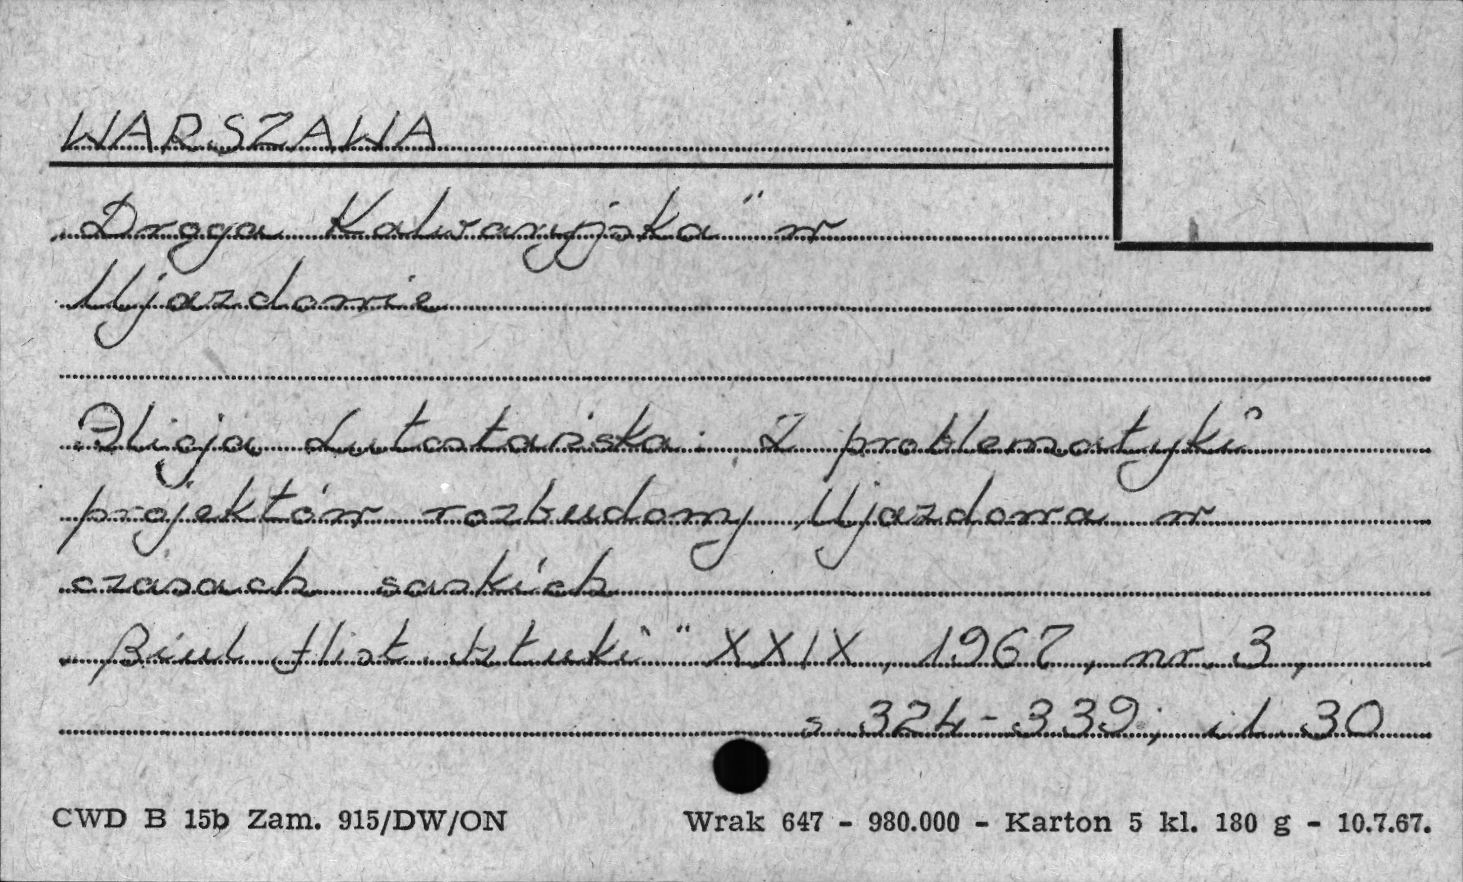 WARSZAWA
„Droga Kalwaryjska" w
Ujazdowie
Alicja Lutostańska: Z problematyki
projektów rozbudowy Ujazdowa w
czasach saskich
„Biul Hist Sztuki" XXIX, 1967, nr. 3,
s 324-339; il. 30
CWD B 15b Zam. 915/DW/ON Wrak 647 - 980.000 - Karton 5 kl. 180 g - 10.7.67.